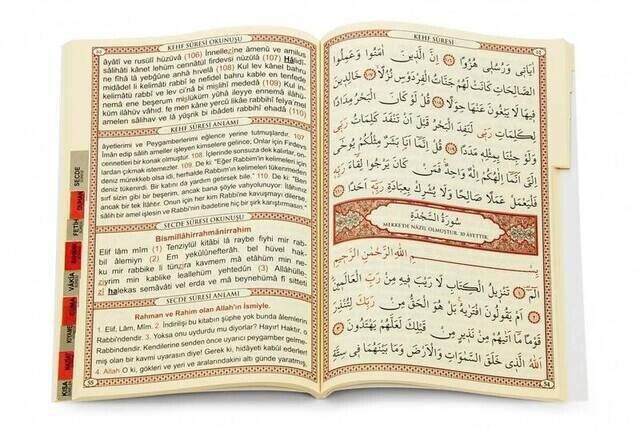 KEHF SÛRESİ OKUNUŞU
âyâtî ve rusulî hüzüvâ (106) İnnellezîne âmenû ve amilus
sâlihâti kânet lehüm cennâtül firdevsi nüzülâ (107) Hâlidî-
sâlihâti
(108) Kul lev kânel bahru
midâdel li kelimâti rabbî le nefidel bahru kable en tenfede
kelimâtü rabbî ve lev ci'nâ bi mislihî mededâ (109) Kul in-
nemâ ene beşerum mislüküm yûhâ ileyye ennemâ ilâhü-
küm ilâhüv vâhıd, fe men kâne yercû likâe rabbihî felya'mel
amelen sâlihav ve lâ yüşrik bi ıbâdeti rabbihî ehadâ (110)
KEHF SÛRESİ ANLAMI
âyetlerimi ve Peygamberlerimi eğlence yerine tutmuşlardır. 107.
İman edip salih ameller işleyen kimselere gelince; Onlar için Firdevs
cennetleri bir konak olmuştur. 108. İçlerinde sonsuza dek kalırlar, on-
lardan çıkmak istemezler. 109. De ki: "Eğer Rabbim'in kelimeleri için
deniz mürekkeb olsa idi, herhalde Rabbim'in kelimeleri tükenmeden
deniz tükenirdi. Bir katını da yardım getirsek bile." 110. De ki: "Ben
sırf sizin gibi bir beşerim, ancak bana şöyle vahyolunuyor: İlâhınız
ancak bir tek İlâhtır. Onun için her kim Rabbi'ne kavuşmayı dilerse,
salih bir amel işlesin ve Rabbi'nin ibadetine hiç bir şirk karıştırmasın."
SECDE SÛRESİ OKUNUŞU
Bismillâhirrahmânirrahim
Elif lâm mîm (1) Tenziylül kitâbi lâ raybe fîyhi mir rab-
bil âlemiyn (2) Em yekûlûnefterâh, bel hüvel hak-
ku mir rabbike li tünzira kavmem mâ etâhüm min ne-
ziyrim min kablike leallehüm yehtedûn (3) Allâhülle-
zî halekas semâvâti vel erda ve mâ beynehümâ fî sitteti
SECDE SÛRESİ ANLAMI
Rahman ve Rahim olan Allah'ın İsmiyle.
1. Elif, Lâm, Mîm. 2. İndirilişi bu kitabın şüphe yok bunda âlemlerin
Rabbi'ndendir. 3. Yoksa onu uydurdu mu diyorlar? Hayır! Haktır, o
Rabbi'ndendir. Kendilerine senden önce uyarıcı peygamber gelme-
miş olan bir kavmi uyarasın diye! Gerek ki, hidâyeti kabul ederler!
4. Allah O ki, gökleri ve yeri ve aralarındakini altı günde yaratmış,
55
SECDE
DUHAN
FETİH
VÂKIA
KEHF SÛRESİ
اٰيَاتٖي وَرُسُلٖي هُزُوًا ﴿١٠٦﴾ اِنَّ الَّذٖينَ اٰمَنُوا وَعَمِلُوا
الصَّالِحَاتِ كَانَتْ لَهُمْ جَنَّاتُ الْفِرْدَوْسِ نُزُلًا ﴿١٠٧﴾ خَالِدٖينَ
فٖيهَا لَا يَبْغُونَ عَنْهَا حِوَلًا ﴿١٠٨﴾ قُلْ لَوْ كَانَ الْبَحْرُ مِدَادًا
لِكَلِمَاتِ رَبّٖي لَنَفِدَ الْبَحْرُ قَبْلَ اَنْ تَنْفَدَ كَلِمَاتُ رَبّٖي
وَلَوْ جِئْنَا بِمِثْلِهٖ مَدَدًا ﴿١٠٩﴾ قُلْ اِنَّمَا اَنَا بَشَرٌ مِثْلُكُمْ يُوحٰى
اِلَيَّ اَنَّمَا اِلٰهُكُمْ اِلٰهٌ وَاحِدٌ فَمَنْ كَانَ يَرْجُوا لِقَاءَ رَبِّهٖ
فَلْيَعْمَلْ عَمَلًا صَالِحًا وَلَا يُشْرِكْ بِعِبَادَةِ رَبِّهٖ اَحَدًا ﴿١١٠﴾
سُورَةُ السَّجْدَةِ
MEKKE'DE NÂZİL OLMUŞTUR. 30 ÂYETTİR.
بِسْمِ اللّٰهِ الرَّحْمٰنِ الرَّحٖيمِ
الٓمٓ ﴿١﴾ تَنْزٖيلُ الْكِتَابِ لَا رَيْبَ فٖيهِ مِنْ رَبِّ الْعَالَمٖينَ
﴿٢﴾ اَمْ يَقُولُونَ افْتَرٰيهُ بَلْ هُوَ الْحَقُّ مِنْ رَبِّكَ لِتُنْذِرَ
قَوْمًا مَا اَتٰيهُمْ مِنْ نَذٖيرٍ مِنْ قَبْلِكَ لَعَلَّهُمْ يَهْتَدُونَ ﴿٣﴾
اَللّٰهُ الَّذٖي خَلَقَ السَّمٰوَاتِ وَالْاَرْضَ وَمَا بَيْنَهُمَا فٖي سِتَّةِ
54